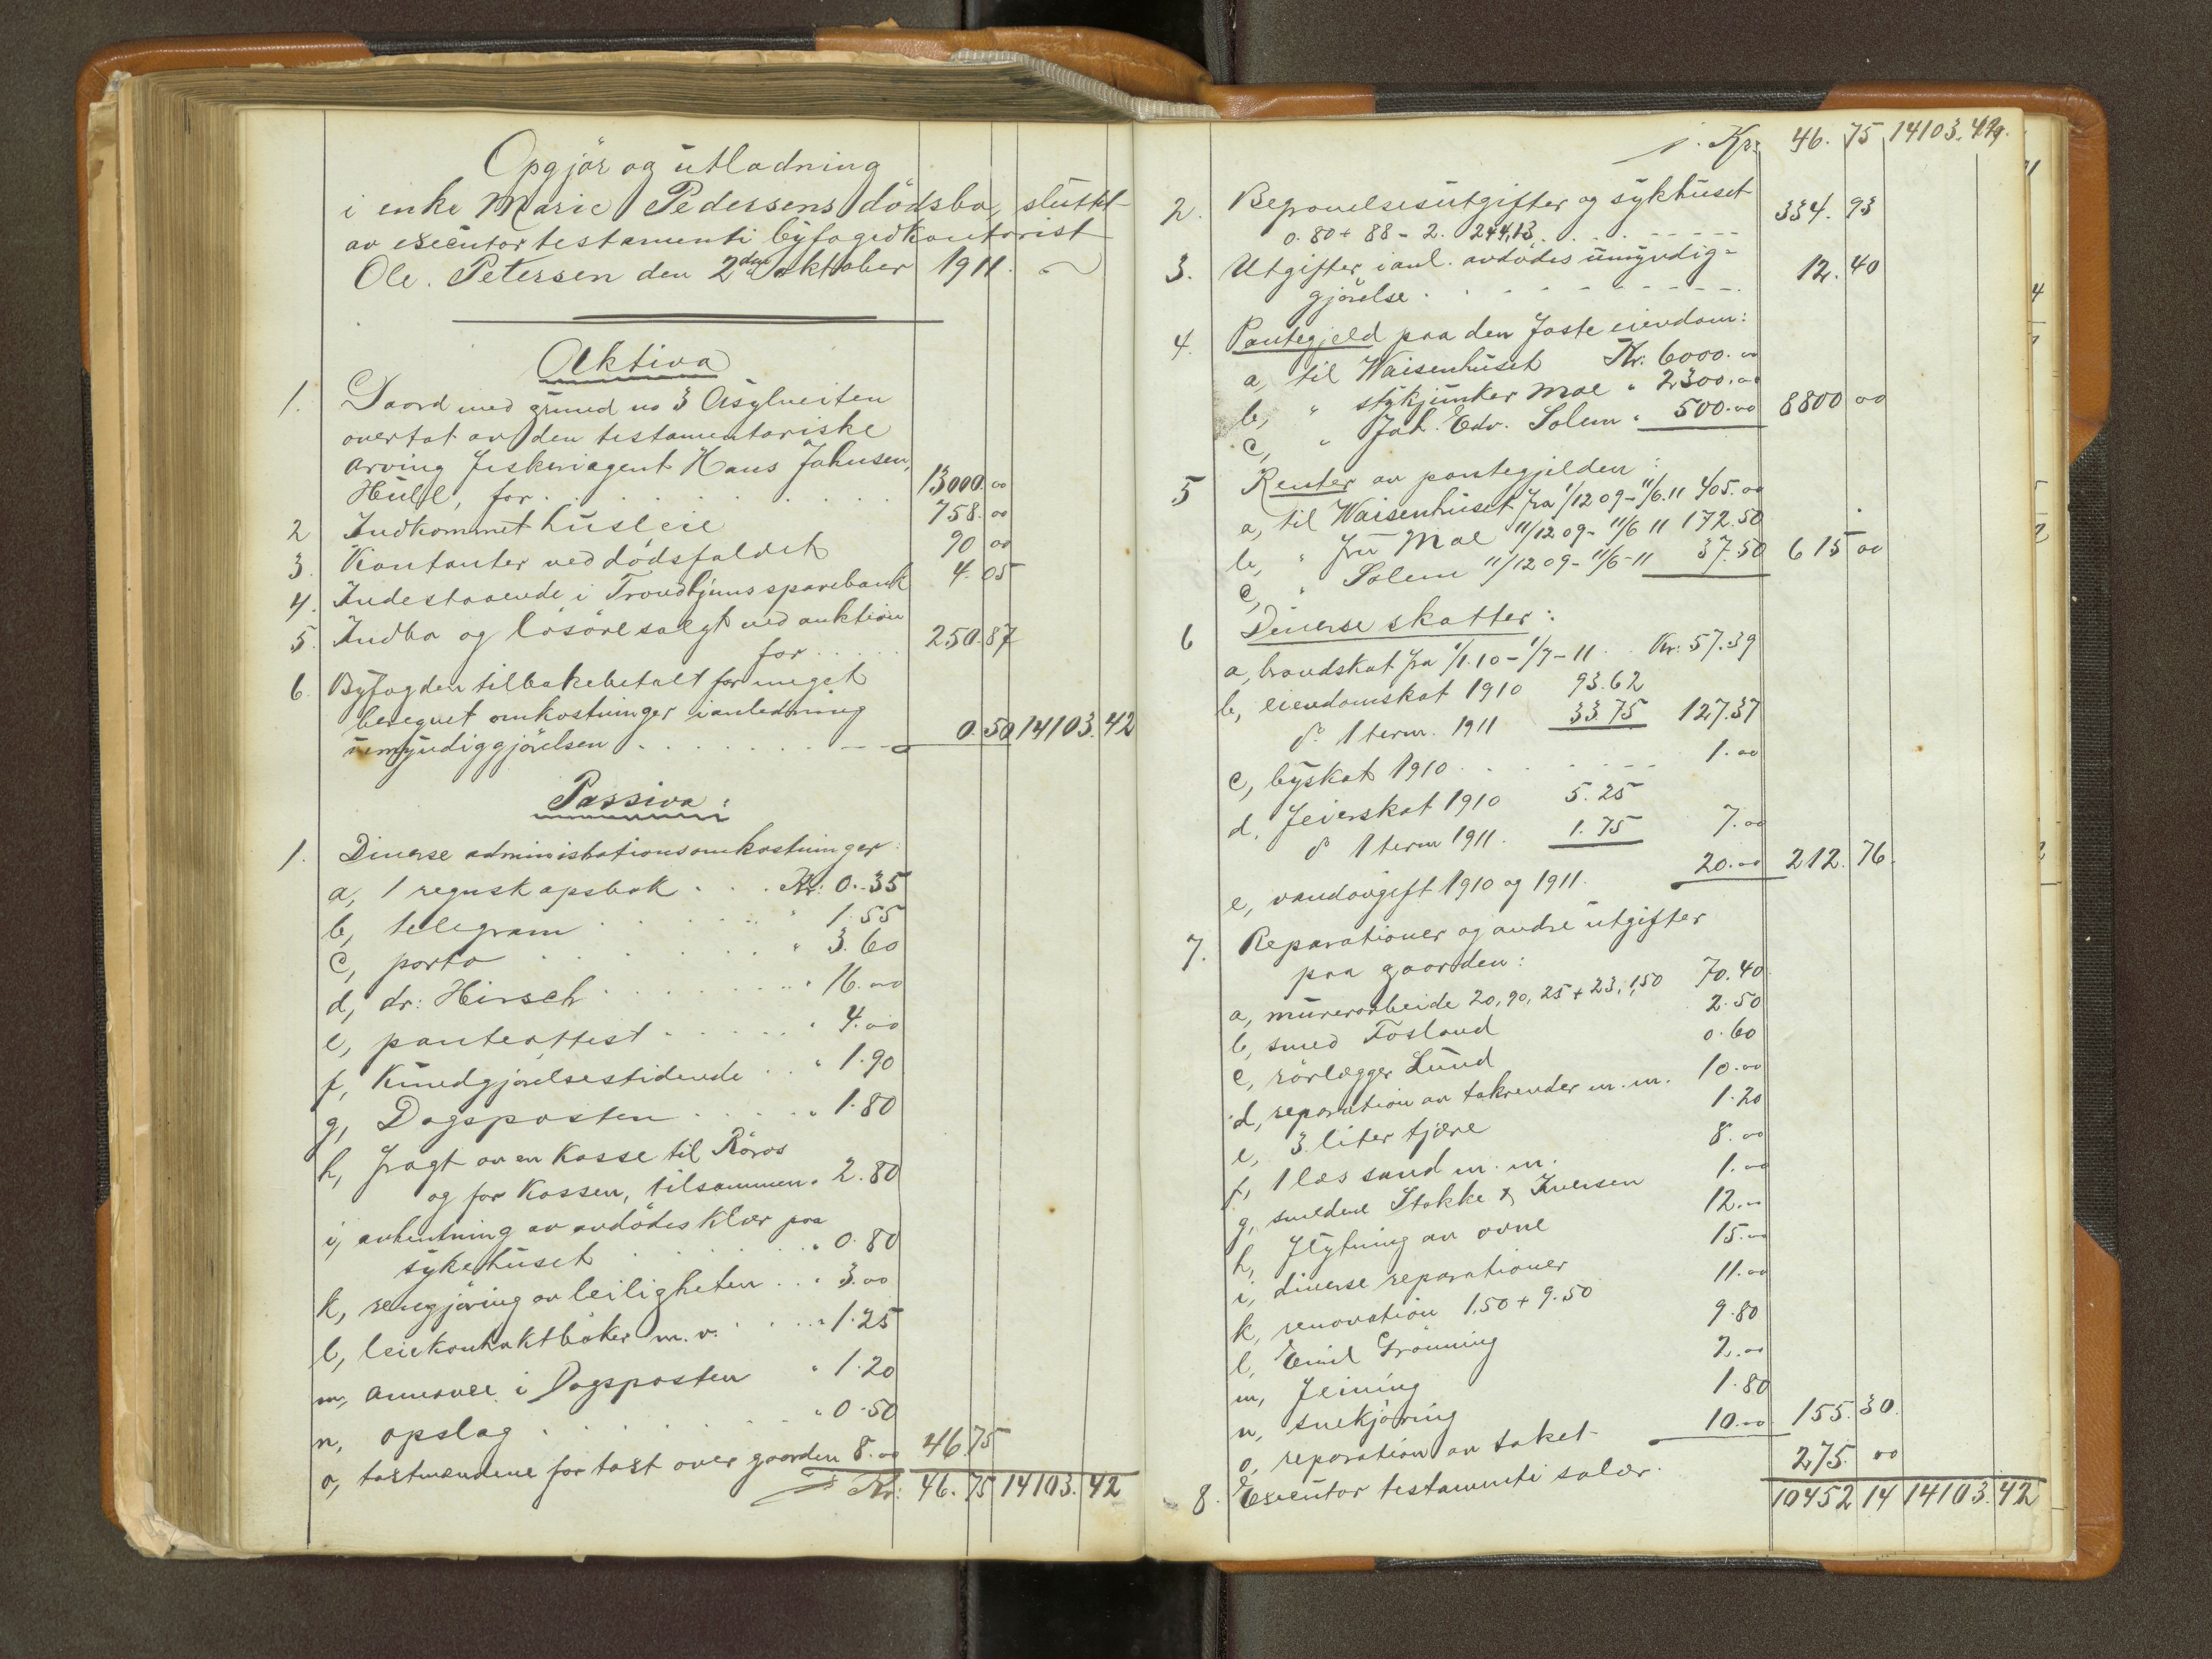 Opgjör og utlodning
i enke Marie Pedersens dödsbo, sluttet
av executor testamenti byfogedkontorist
Ole. Petersen den 2den oktober 1911.
Aktiva
1. Gaard med grund no 3 Asylveiten
overtat av den testamentariske
arving fiskeriagent Hans Johnsen,
Hull, for . . . . . . . . 13000.00
2 Indkommet husleie 758.00
3. Kontanter ved dödsfaldet 90 00
4. Indestaaende i Trondhjems sparebank 4.05
5. Indbo og lösöre solgt ved auktion
for . . . . . 250.87
6. Byfogden tilbakebetalt for meget
beregnet omkostninger i anledning
umyndiggjörelsen . . . . . . . 0.50 14103.42
Passiva:
1. Diverse administrationsomkostninger:
a, 1 regnskapsbok . . . Kr: 0.35
b, telegram . . . . . " 1.55
c, porto . . . . . . " 3.60
d, dr: Hirsch . . . . . . " 16.00
e, panteattest . . . . . " 4.00
f, Kundgjörelsestidende . . " 1.90
g, Dagsposten . . . . . " 1.80
h, fragt av en kasse til Röros
og for kassen, tilsammen " 2.80
i, avhentning av avdödes klær paa
sykehuset . . . . . . . " 0.80
k, rengjöring av leiligheten . . " 3.00
l, leiekontraktböker m.v. . . . " 1.25
m, annonce i Dagsposten " 1.20
n, opslag . . . . . . " 0.50
o, takstmændene for takst over gaarden 8.00 46.75
Kr: 46.75 14103.42
Kr: 46.75 14103.42
2. Begravelsesutgifter og sykhuset
0.80 + 88 - 2. 244,13 . . . . 334.93
3. Utgifter i anl. avdödes umyndig-
gjörelse . . . . . . . . 12.40
4. Pantegjeld paa den faste eiendom:
a, til Waisenhuset Kr: 6000.00
b, " stykjunker Moe " 2300.00
c, " Joh. Edv. Solem " 500.00 8800 00
5 Renter av pantegjelden:
a, til Waisenhuset fra 11/12 09 - 11/6.11 405.00
b, " fru Moe 11/12 09 - 11/6 11 172.50
c, " Solem 11/12 09 - 11/6-11 37.50 615 00
6 Diverse skatter:
a, brandskat fra 1/1.10 - 1/7-11 . . Kr: 57.39
b, eiendomskat 1910 93.62
do 1 term. 1911 33.75 127.37
c, byskat 1910 . . . . . . 1.00
d, feierskat 1910 5.25
do 1 term 1911. 1.75 7.00
e, vandavgift 1910 og 1911. 20.00 212.76.
7. Reparationer og andre utgifter
paa gaarden:
a, murerarbeide 20,90, 25 + 23, 1,50 70.40
b, smed Fosland 2.50
c, rörlægger Lund 0.60
d, reparation av takrender m.m. 10.00
e, 3 liter tjære 1.20
f, 1 læs sand m.m. 8.00
g, smedene Stokke & Iversen 1.00
h, flytning av ovne 12.00
i, diverse reparationer 15.00
k, renovation 1.50 + 9.50 11.00
l, Emil Grönning 9.80
m, feining 2.00
n, snekjöring 1.80
o, reparation av taket 10.00 155.30.
8. Executor testamenti salær. 275.00
10452 14 14103.42